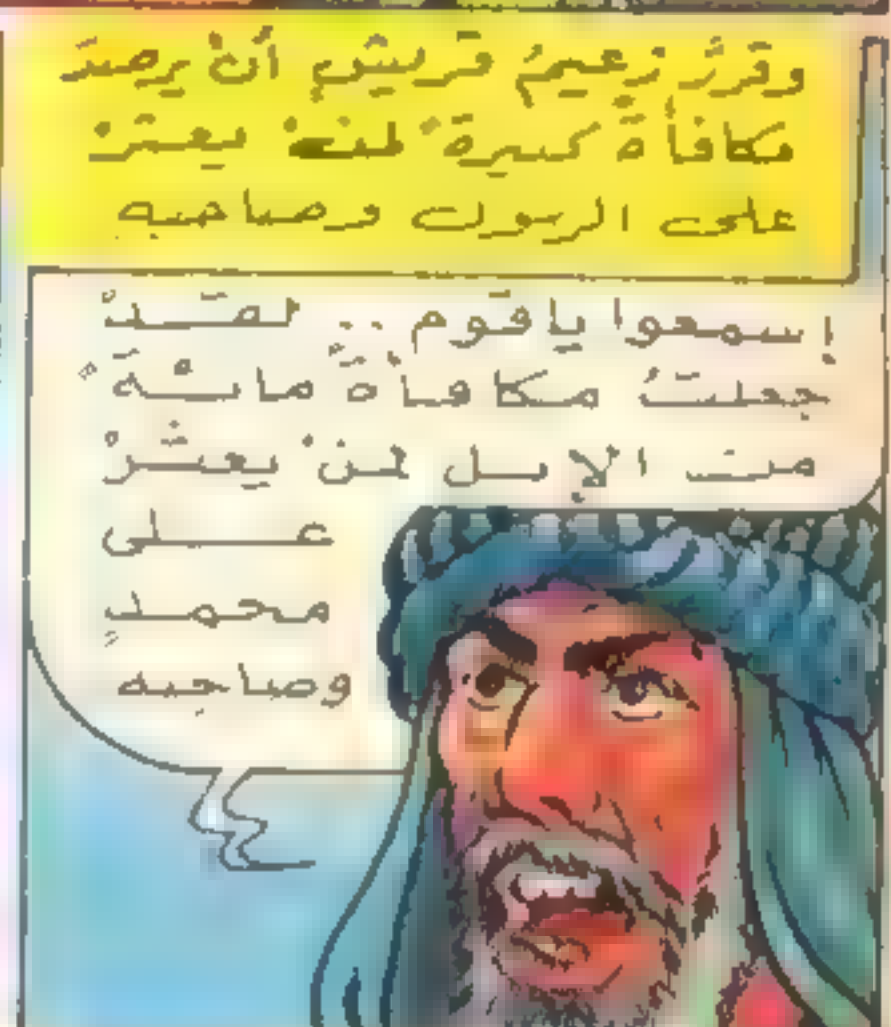 وقررَ زعيمُ قريشٍ أنْ يرصدَ
مكافأةً كبيرةً لمنْ يعثرْ
على الرسول وصاحبه
إسمعوا ياقوم .. لقَدْ
جعلتُ مكافأةً مائةً
من الإبل لمنْ يعثرْ
على
محمدٍ
وصاحبه